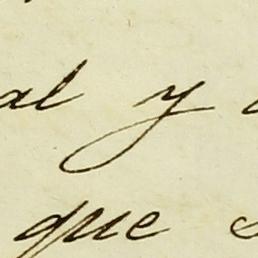 al y
que